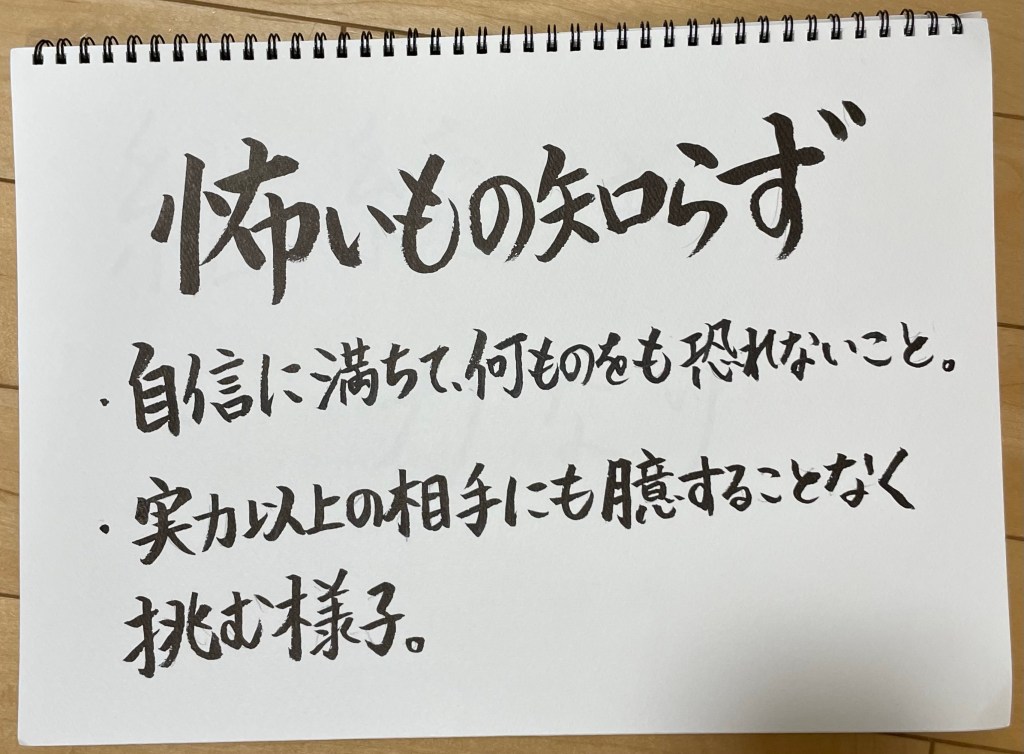 怖いもの知らず
・自信に満ちて、何ものをも恐れないこと。
・実力以上の相手にも臆することなく
挑む様子。